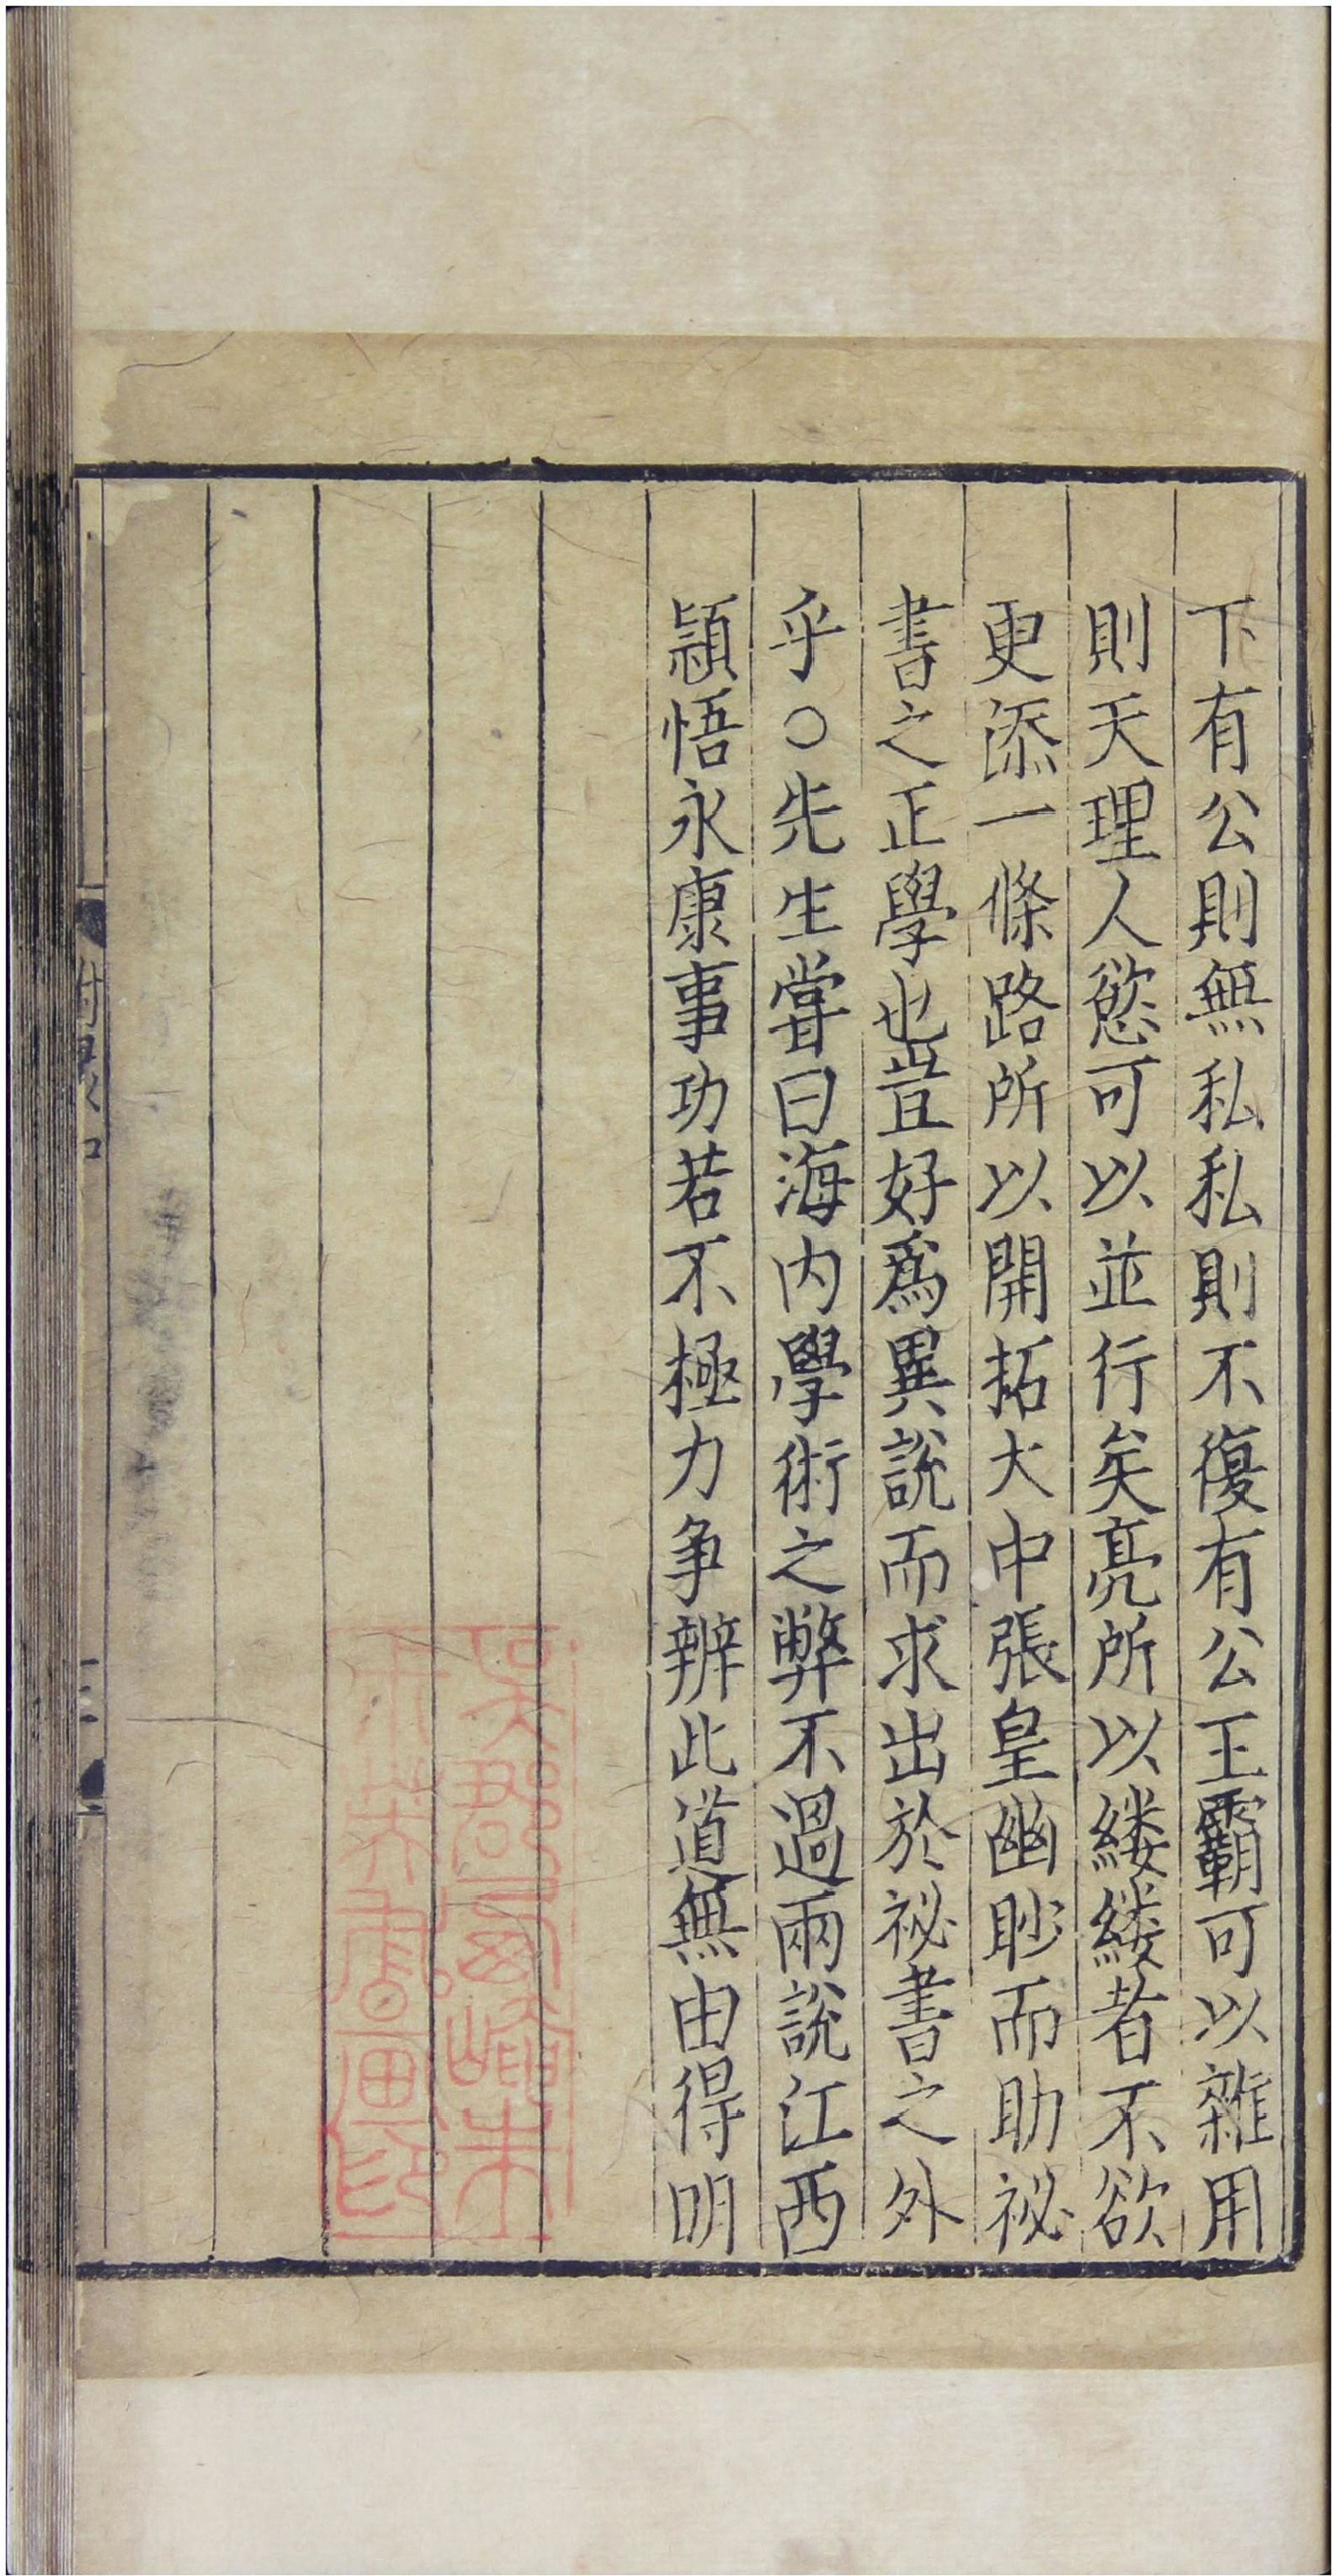 下有公則無私私則不復有公王霸可以雜用
則天理人慾可以並行矣亮所以縷縷者不欲
更添一條路所以開拓大中張皇幽眇而助祕
書之正學也豈好爲異說而求出於祕書之外
乎○先生嘗曰海內學術之弊不過兩說江西
頴悟永康事功若不極力争辨此道無由得明